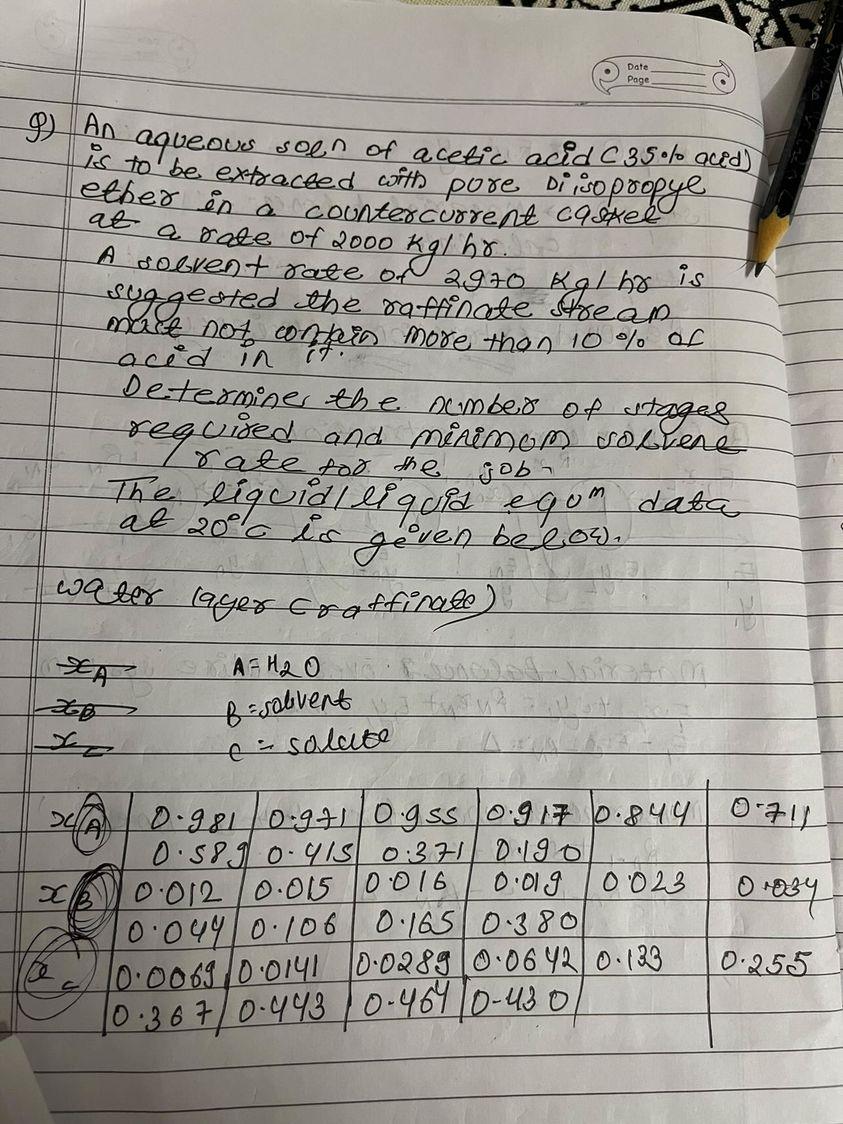 Date
Page
Q) An aqueous soln of acetic acid (35% acid)
is to be extracted with pore Diisopropye
ether in a countercurrent caskel
at a rate of 2000 Kg/hr.
A solvent rate of 2970 Kg/hr is
suggested the raffinate stream
must not contain more than 10% of
acid in it.
Determines the number of stages
required and minimum solvent
rate for the job.
The liquid/liquid eqᵘm data
at 20°C is given below.
water layer (raffinate)
xA A=H2O
xB B=solvent
xC C = solute
xA 0.981 0.971 0.955 0.917 0.844 0.711
0.589 0.415 0.371 0.190
xB 0.012 0.015 0.016 0.019 0.023 0.034
0.044 0.106 0.165 0.380
xC 0.0069 0.0141 0.0289 0.0642 0.133 0.255
0.367 0.443 0.464 0.430